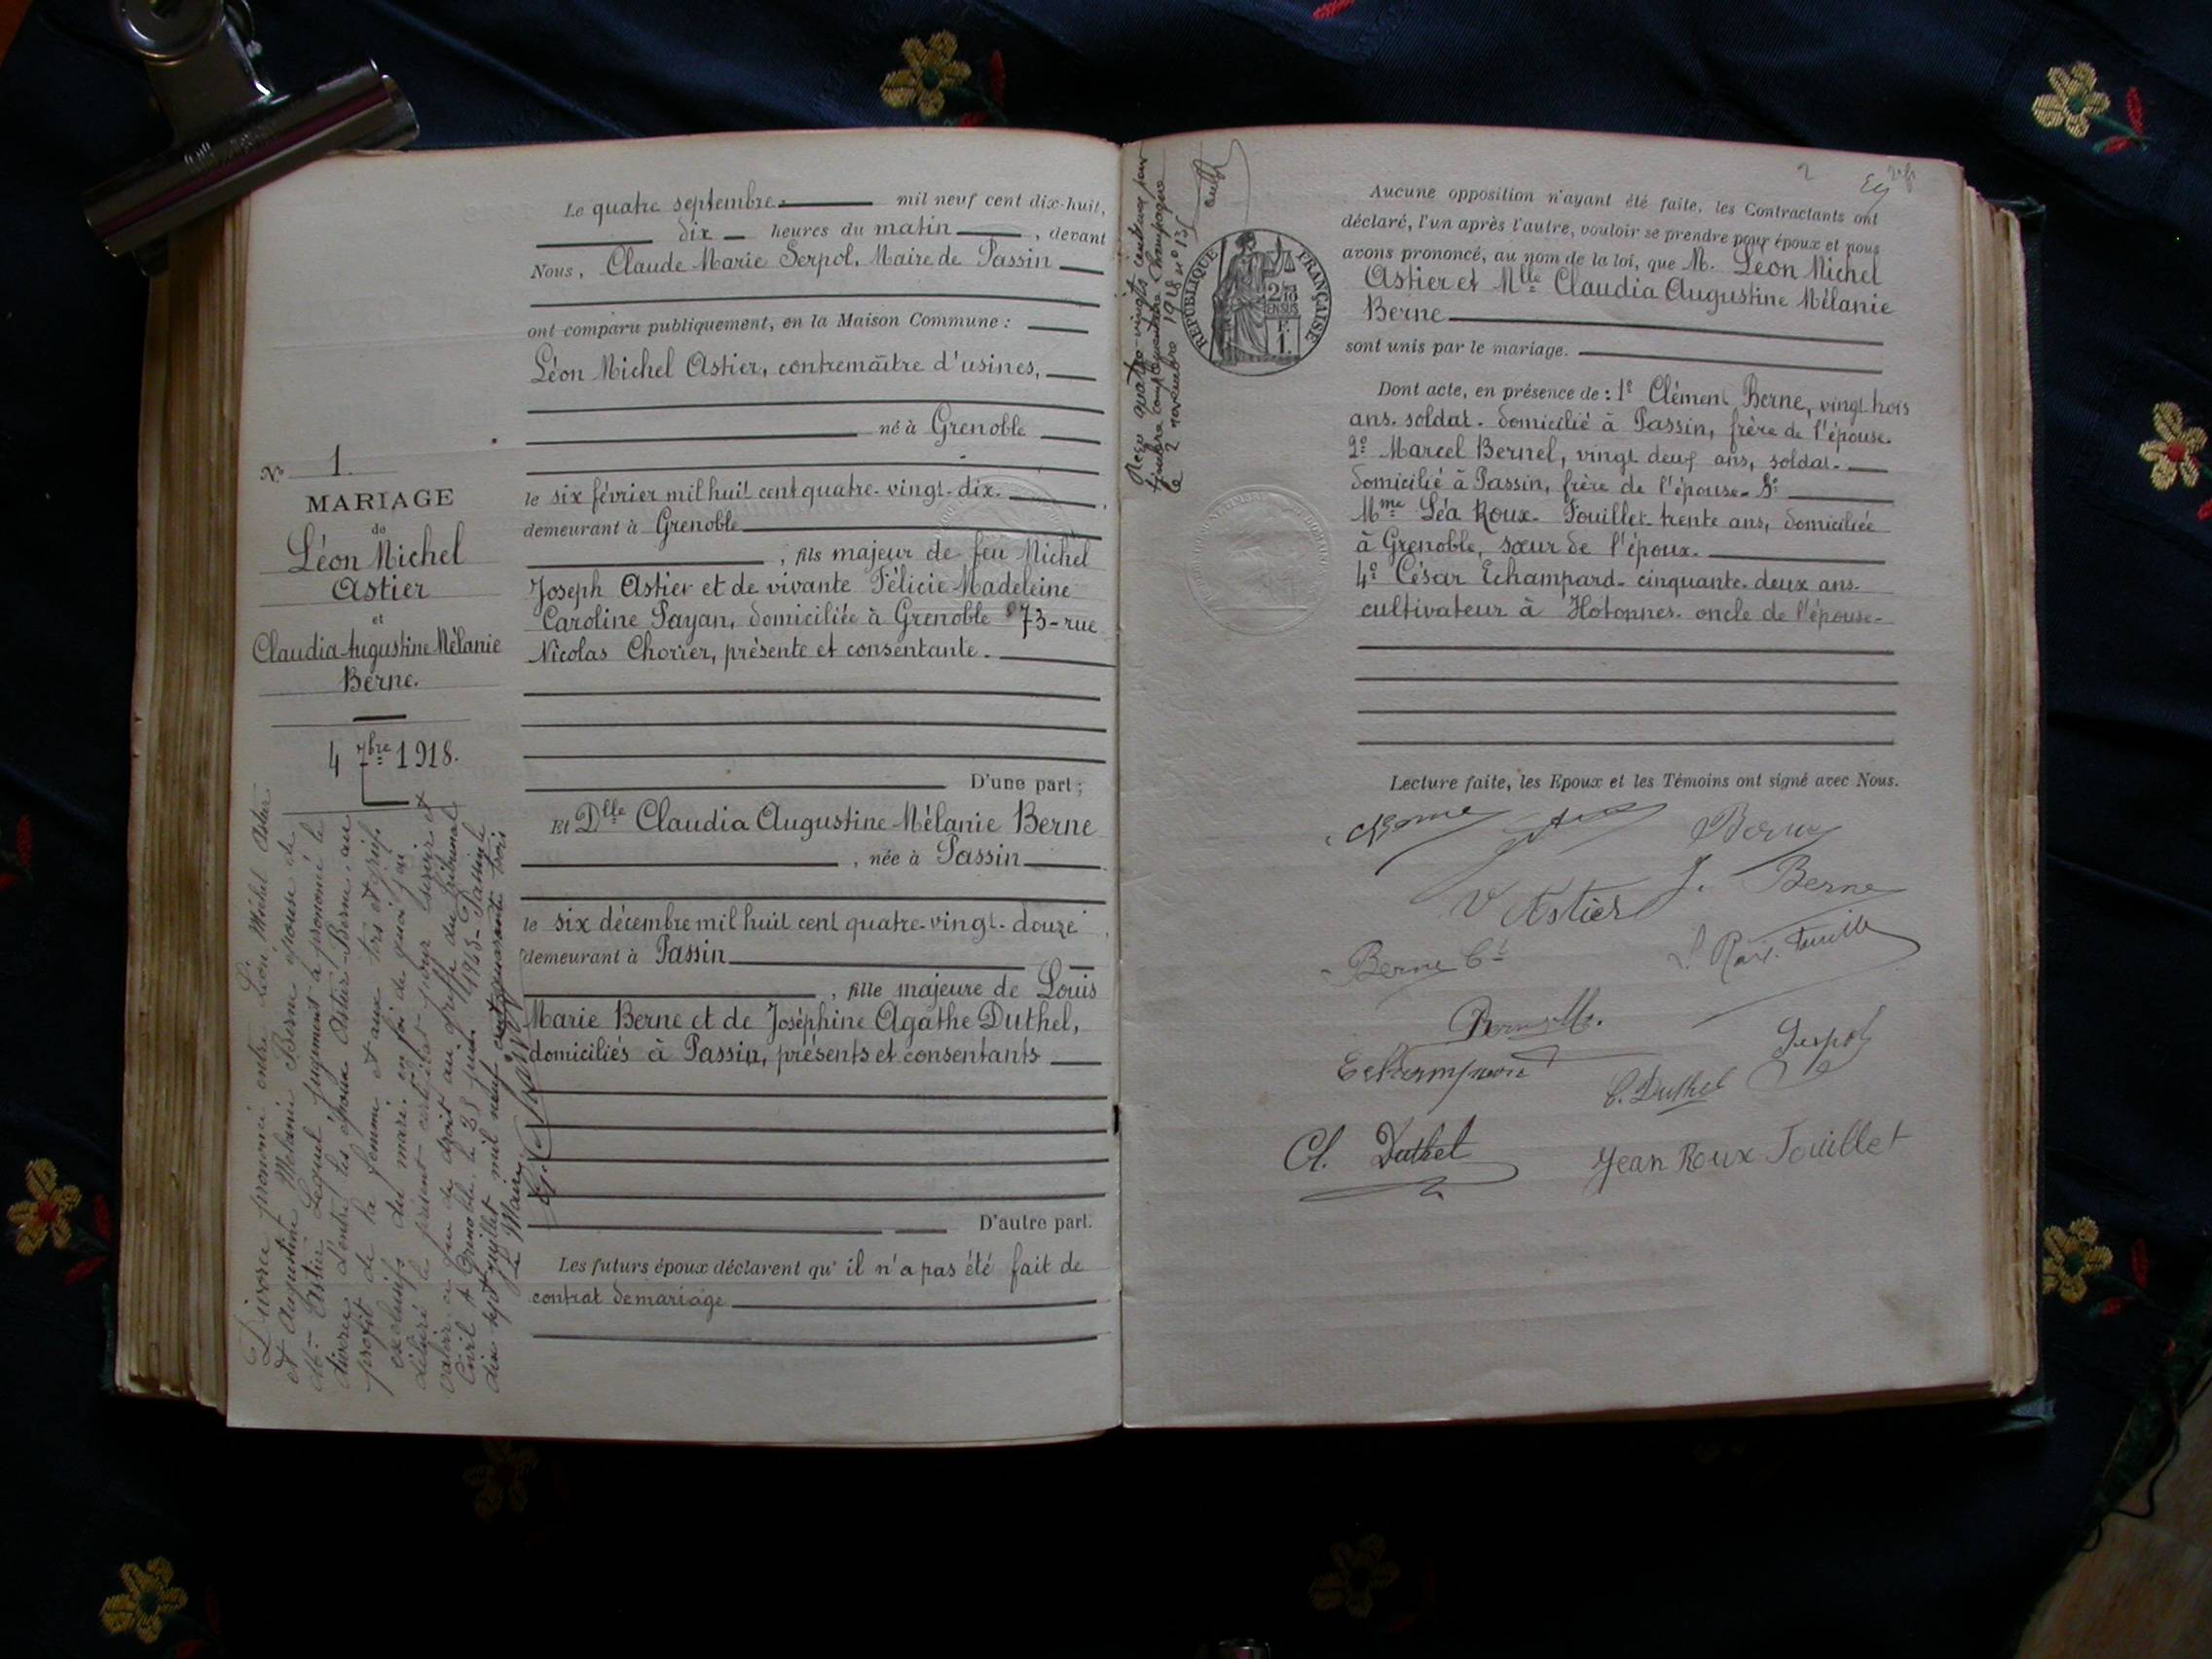 Le quatre septembre mil neuf cent dix-huit,
dix heures du matin, devant
Nous, Claude Marie Serpol, Maire de Passin
ont comparu publiquement, en la Maison Commune :
Léon Michel Astier, contremaître d'usines,
né à Grenoble
le six février mil huit cent quatre-vingt-dix.
demeurant à Grenoble
, fils majeur de feu Michel
Joseph Astier et de vivante Félicie Madeleine
Caroline Payan, domiciliée à Grenoble 73 - rue
Nicolas Chorier, présente et consentante.
D'une part ;
Et Dlle Claudia Augustine Mélanie Berne
, née à Passin
le six décembre mil huit cent quatre-vingt-douze
demeurant à Passin
, fille majeure de Louis
Marie Berne et de Joséphine Agathe Duthel,
domiciliés à Passin, présents et consentants
D'autre part.
Les futurs époux déclarent qu'il n'a pas été fait de
contrat de mariage
No 1.
MARIAGE
de
Léon Michel
Astier
et
Claudia Augustine Mélanie
Berne.
4 7bre 1918.
Divorce prononcé entre Léon Michel Astier
et Augustine Mélanie Berne épouse de
Mr Astier. Lequel jugement a prononcé le
divorce d'entre les époux Astier-Berne, au
profit de la femme et aux torts et griefs
exclusifs du mari. en foi de quoi j'ai
délivré le présent certificat pour servir et
valoir ce que de droit au greffe du tribunal
Civil de Grenoble le 25 juin Passin le
dix sept juillet mil neuf cent quarante trois
Le Maire,
Reçu quatre-vingts centimes pour
timbre complémentaire Champagne
le 2 novembre 1918 no 135
RÉPUBLIQUE FRANÇAISE
2/10
EN SUS
F.
1.
2
Aucune opposition n'ayant été faite, les Contractants ont
déclaré, l'un après l'autre, vouloir se prendre pour époux et nous
avons prononcé, au nom de la loi, que M. Léon Michel
Astier et Mlle Claudia Augustine Mélanie
Berne
sont unis par le mariage.
Dont acte, en présence de : 1º Clément Berne, vingt trois
ans. soldat. domicilié à Passin, frère de l'épouse.
2º Marcel Bernel, vingt deux ans, soldat.
domicilié à Passin, frère de l'épouse. 3º
Mme Léa Roux-Fouillet trente ans, domiciliée
à Grenoble, sœur de l'époux.
4º César Echampard. cinquante-deux ans.
cultivateur à Hotonnes. oncle de l'épouse.
Lecture faite, les Epoux et les Témoins ont signé avec Nous.
Berne
V Astier J. Berne
Berne Ct
Serpol
C. Duthel
Cl. Duthel
Jean Roux Fouillet